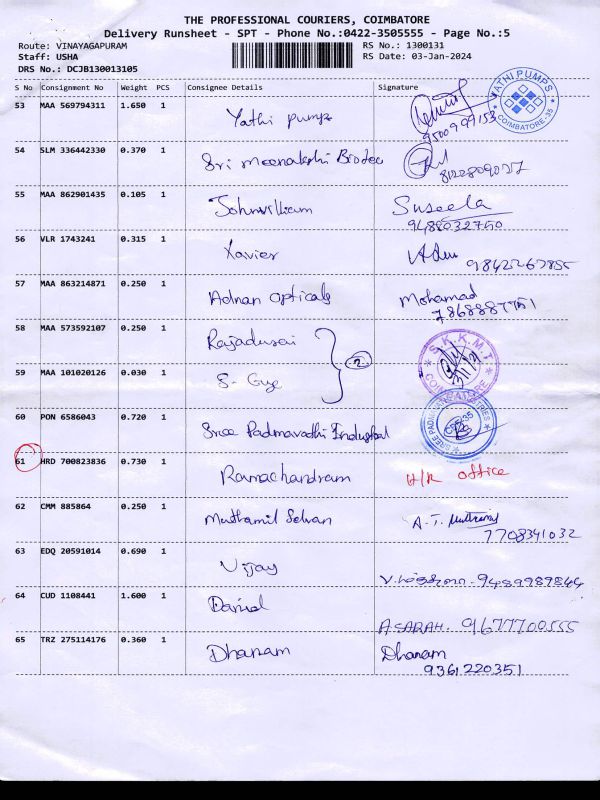 THE PROFESSIONAL COURIERS, COIMBATORE
Delivery Runsheet - SPT - Phone No.:0422-3505555 - Page No.:5
Route: VINAYAGAPURAM RS No.: 1300131
Staff: USHA RS Date: 03-Jan-2024
DRS No.: DCJB130013105
S No Consignment No Weight PCS Consignee Details Signature
53 MAA 569794311 1.650 1 Yathi pumps 9500999153
YATHI PUMPS COIMBATORE-35
54 SLM 336442330 0.370 1 Sri meenakshi
55 MAA 862901435 0.105 1 Johnwilliam Suseela
9488032750
56 VLR 1743241 0.315 1 Xavier 9842267855
57 MAA 863214871 0.250 1 Adnan opticals Mohamad
58 MAA 573592107 0.250 1 Rajadurai
2
S.K.K.M.T
59 MAA 101020126 0.030 1 S-
60 PON 6586043 0.720 1 Sree Padmavadhi Industrial
61 HRD 700823836 0.730 1 Ramachandram H/R office
62 CMM 885864 0.250 1 Muthamil Selvan A.T.
7708341032
63 EDQ 20591014 0.690 1 Vijay
64 CUD 1108441 1.600 1 Daniel
A SARAH. 9677700555
65 TRZ 275114176 0.360 1 Dhanam Dhanam
9361220351